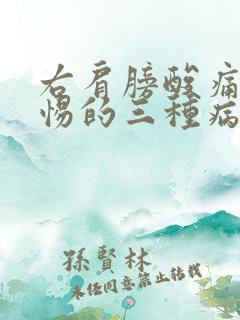 右肩膀酸痛
惕的三種病
孫賢林
未任同意禁止转载